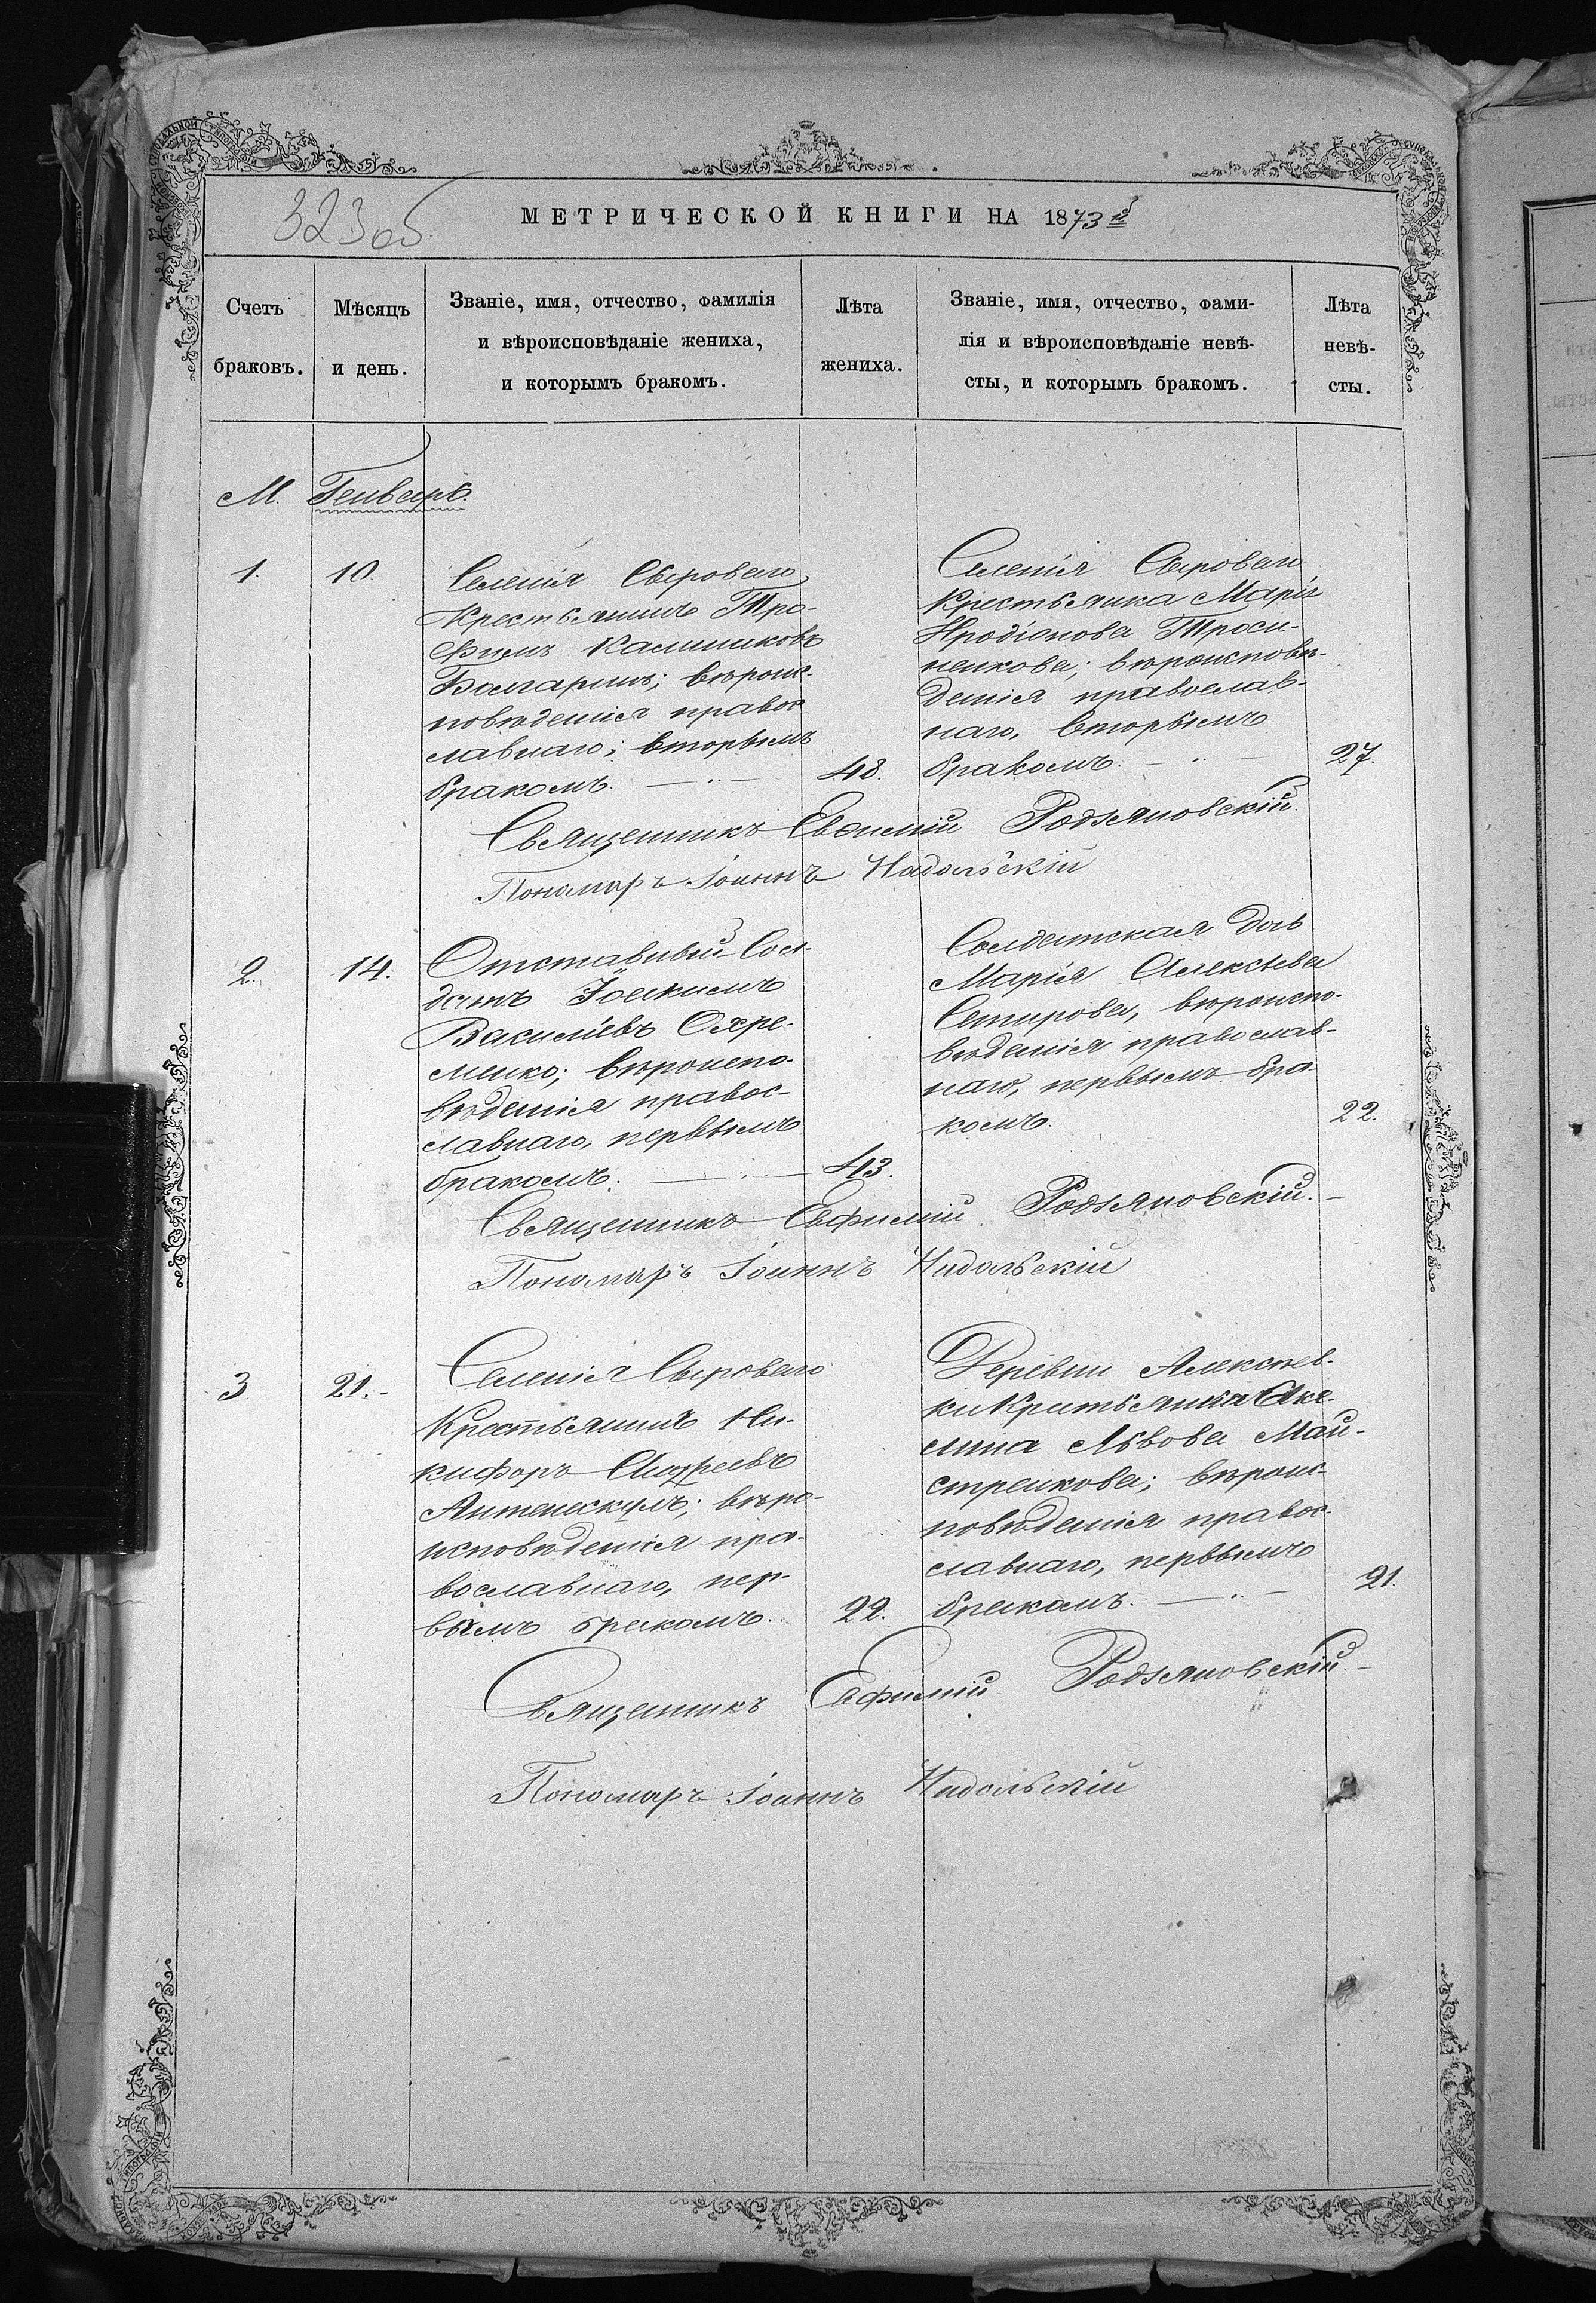 323об.
МЕТРИЧЕСКОЙ КНИГИ НА 1873 г.
Счетъ браковъ.
Мѣсяцъ и день.
Званіе, имя, отчество, фамилія
и вѣроисповѣданіе жениха,
и которымъ бракомъ.
Лѣта жениха.
Званіе, имя, отчество, фами-
лія и вѣроисповѣданіе невѣ-
сты, и которымъ бракомъ.
Лѣта невѣ-
сты.
М. Генварь.
1. 10.
Селенія Сырового
Крестьянинъ Тро-
фимъ Калиниковъ
Болгаринъ; вѣроис-
повѣданія правос
лавнаго; вторымъ
бракомъ. 48.
Селенія Сырового
Крестьянка Марія
Иродіонова Троси-
ненкова; вѣроисповѣ-
данія православ-
наго, вторымъ
бракомъ. 27.
Священникъ Евѳимій Родзяновскій.
Пономарь Іоаннъ Надольскій
2. 14.
Отставный Сол-
датъ Іоакимъ
Василіевъ Охре-
менко; вѣроиспо-
вѣданія правос-
лавнаго, первымъ
бракомъ. 43.
Солдатская дочь
Марія Алексѣева
Сетирова, вѣроиспо-
вѣданія православ-
наго, первымъ бра
комъ. 22.
Священникъ Евфимій Родзяновскій.
Пономарь Іоаннъ Надольскій
3 21.
Селенія Сырового
Крестьянинъ Ни-
кифоръ Андреевъ
Антонескулъ; вѣро-
исповѣданія пра-
вославнаго, пер-
вымъ бракомъ. 22.
Деревни Алексѣев-
ки Крестьянка Аке-
лина Львова Май-
стренкова; вѣроис-
повѣданія правос-
славнаго, первымъ
бракомъ. 21.
Священникъ Евфимій Родзяновскій.
Пономарь Іоаннъ Надольскій